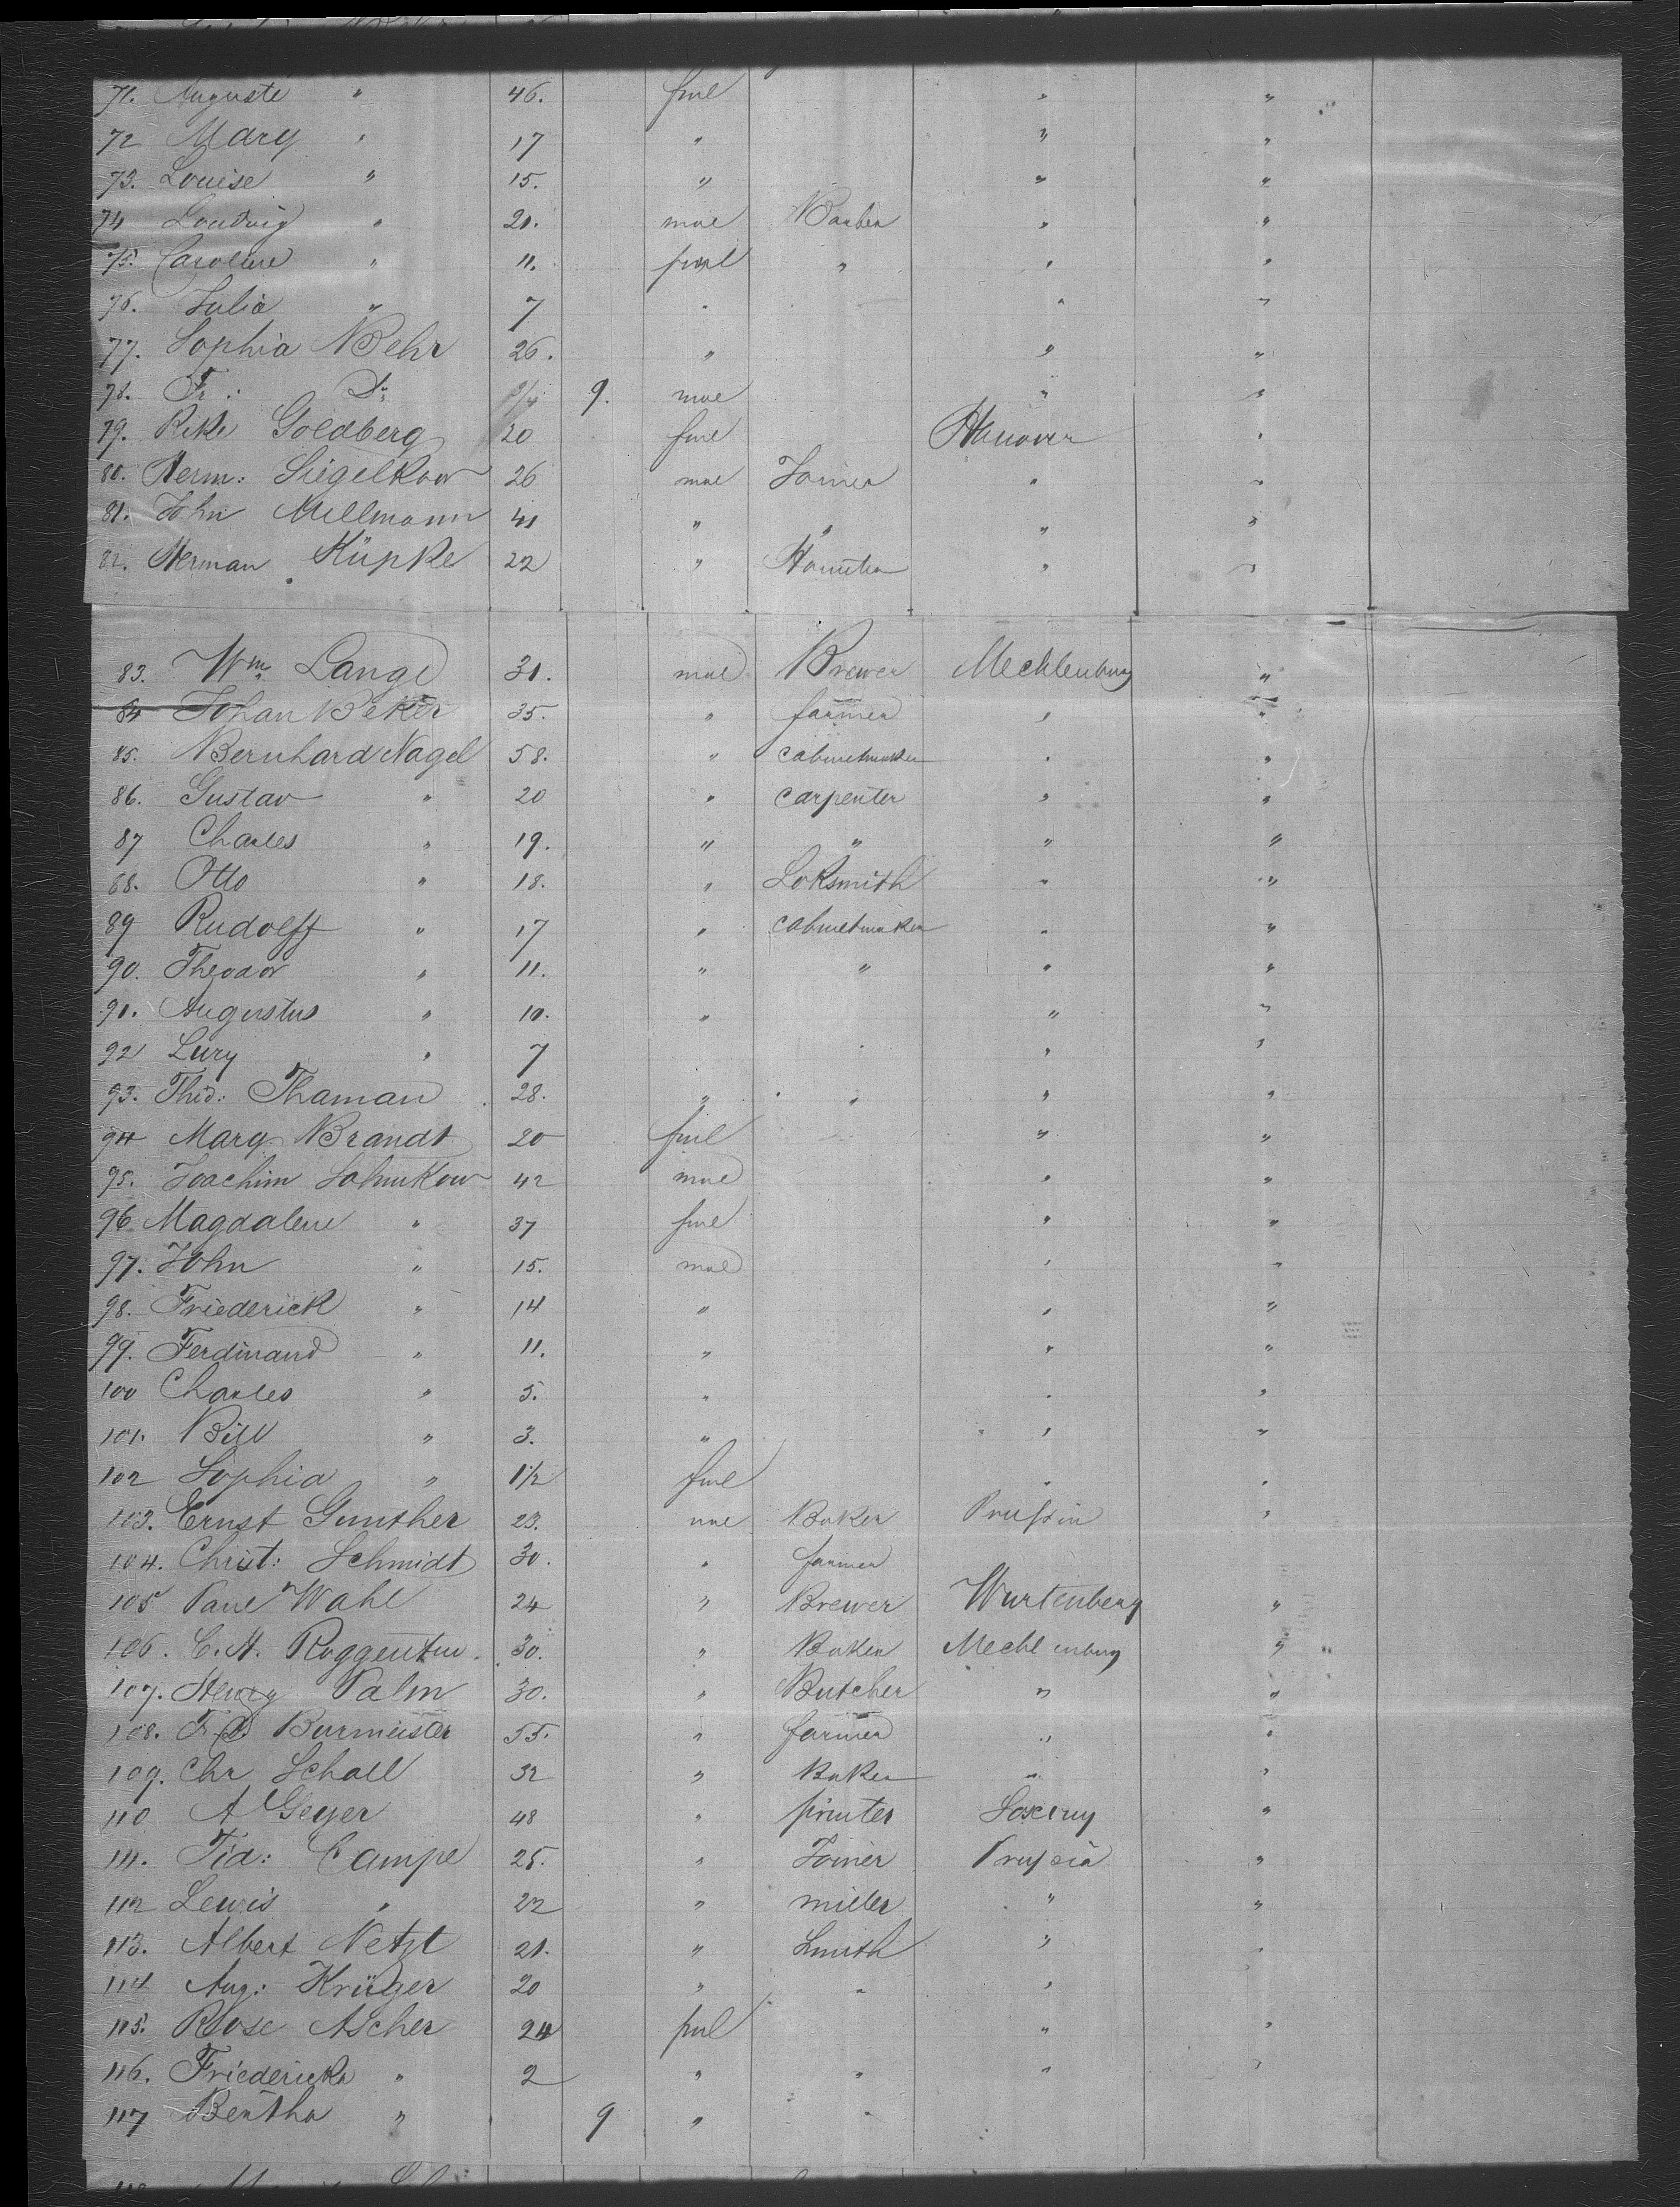 71. Auguste " 46. fml " "
72 Mary " 17 " " "
73. Louise " 15. " " "
74 Loudwig " 21. male " "
75. Caroline " 11. feml " " "
76. Julia " 7 " " "
77. Sophia Behr 26. " " "
78. Fr: Do 3/4 9. male " "
79. Rike Goldberg 20 fml Hanover "
80. Herm: Siegelkow 26 male Joiner " "
81. John Mellmann 41 " " " "
82. Herman Küpke 22 " " "
83. Wm Lange 31. male Brewer Mecklenburg "
84 Johan Beker 35. " farmer " "
85. Bernhard Nagel 58. " cabinetmaker " "
86. Gustav " 20 " carpenter " "
87 Charles " 19. " " " "
88. Otto " 18. " Loksmith " "
89 Rudolff " 17 " cabinetmaker " "
90. Theodor " 11. " " " "
91. Augustus " 10. " " "
92 " 7 " "
93. Thed: Thaman 28. " " " "
94 Mary Brandt 20 fml " "
95. Joachim 42 male " "
96 Magdalene " 37 fml " "
97. John " 15. male " "
98. Friederick " 14 " " "
99. Ferdinand " 11. " " "
100 Charles " 5. " " "
101. Bill " 3. " " "
102 Sophia " 1½ fml " "
103. Ernst Gunther 23. male Baker Prussia "
104. Christ: Schmidt 30. " farmer
105 Paul Wahl 24 " Brewer Wurtenberg "
106. C. H. 30. " Baker Mecklenburg "
107. Henry Palm 30. " Butcher " "
108. Fr. Burmeister 55. " farmer " "
109. Chr Schall 32 " Baker " "
110 A Geyer 48 " printer Saxony "
111. Campe 25. " Joiner Prussia "
112 Lewis " 22 " miller " "
113. Albert Netzt 21. " Smith " "
114 Aug: Krüger 20 " " "
115. Rose Ascher 24 fml " "
116. Friedericka " 2 " " " "
117 Bertha " 9 " "